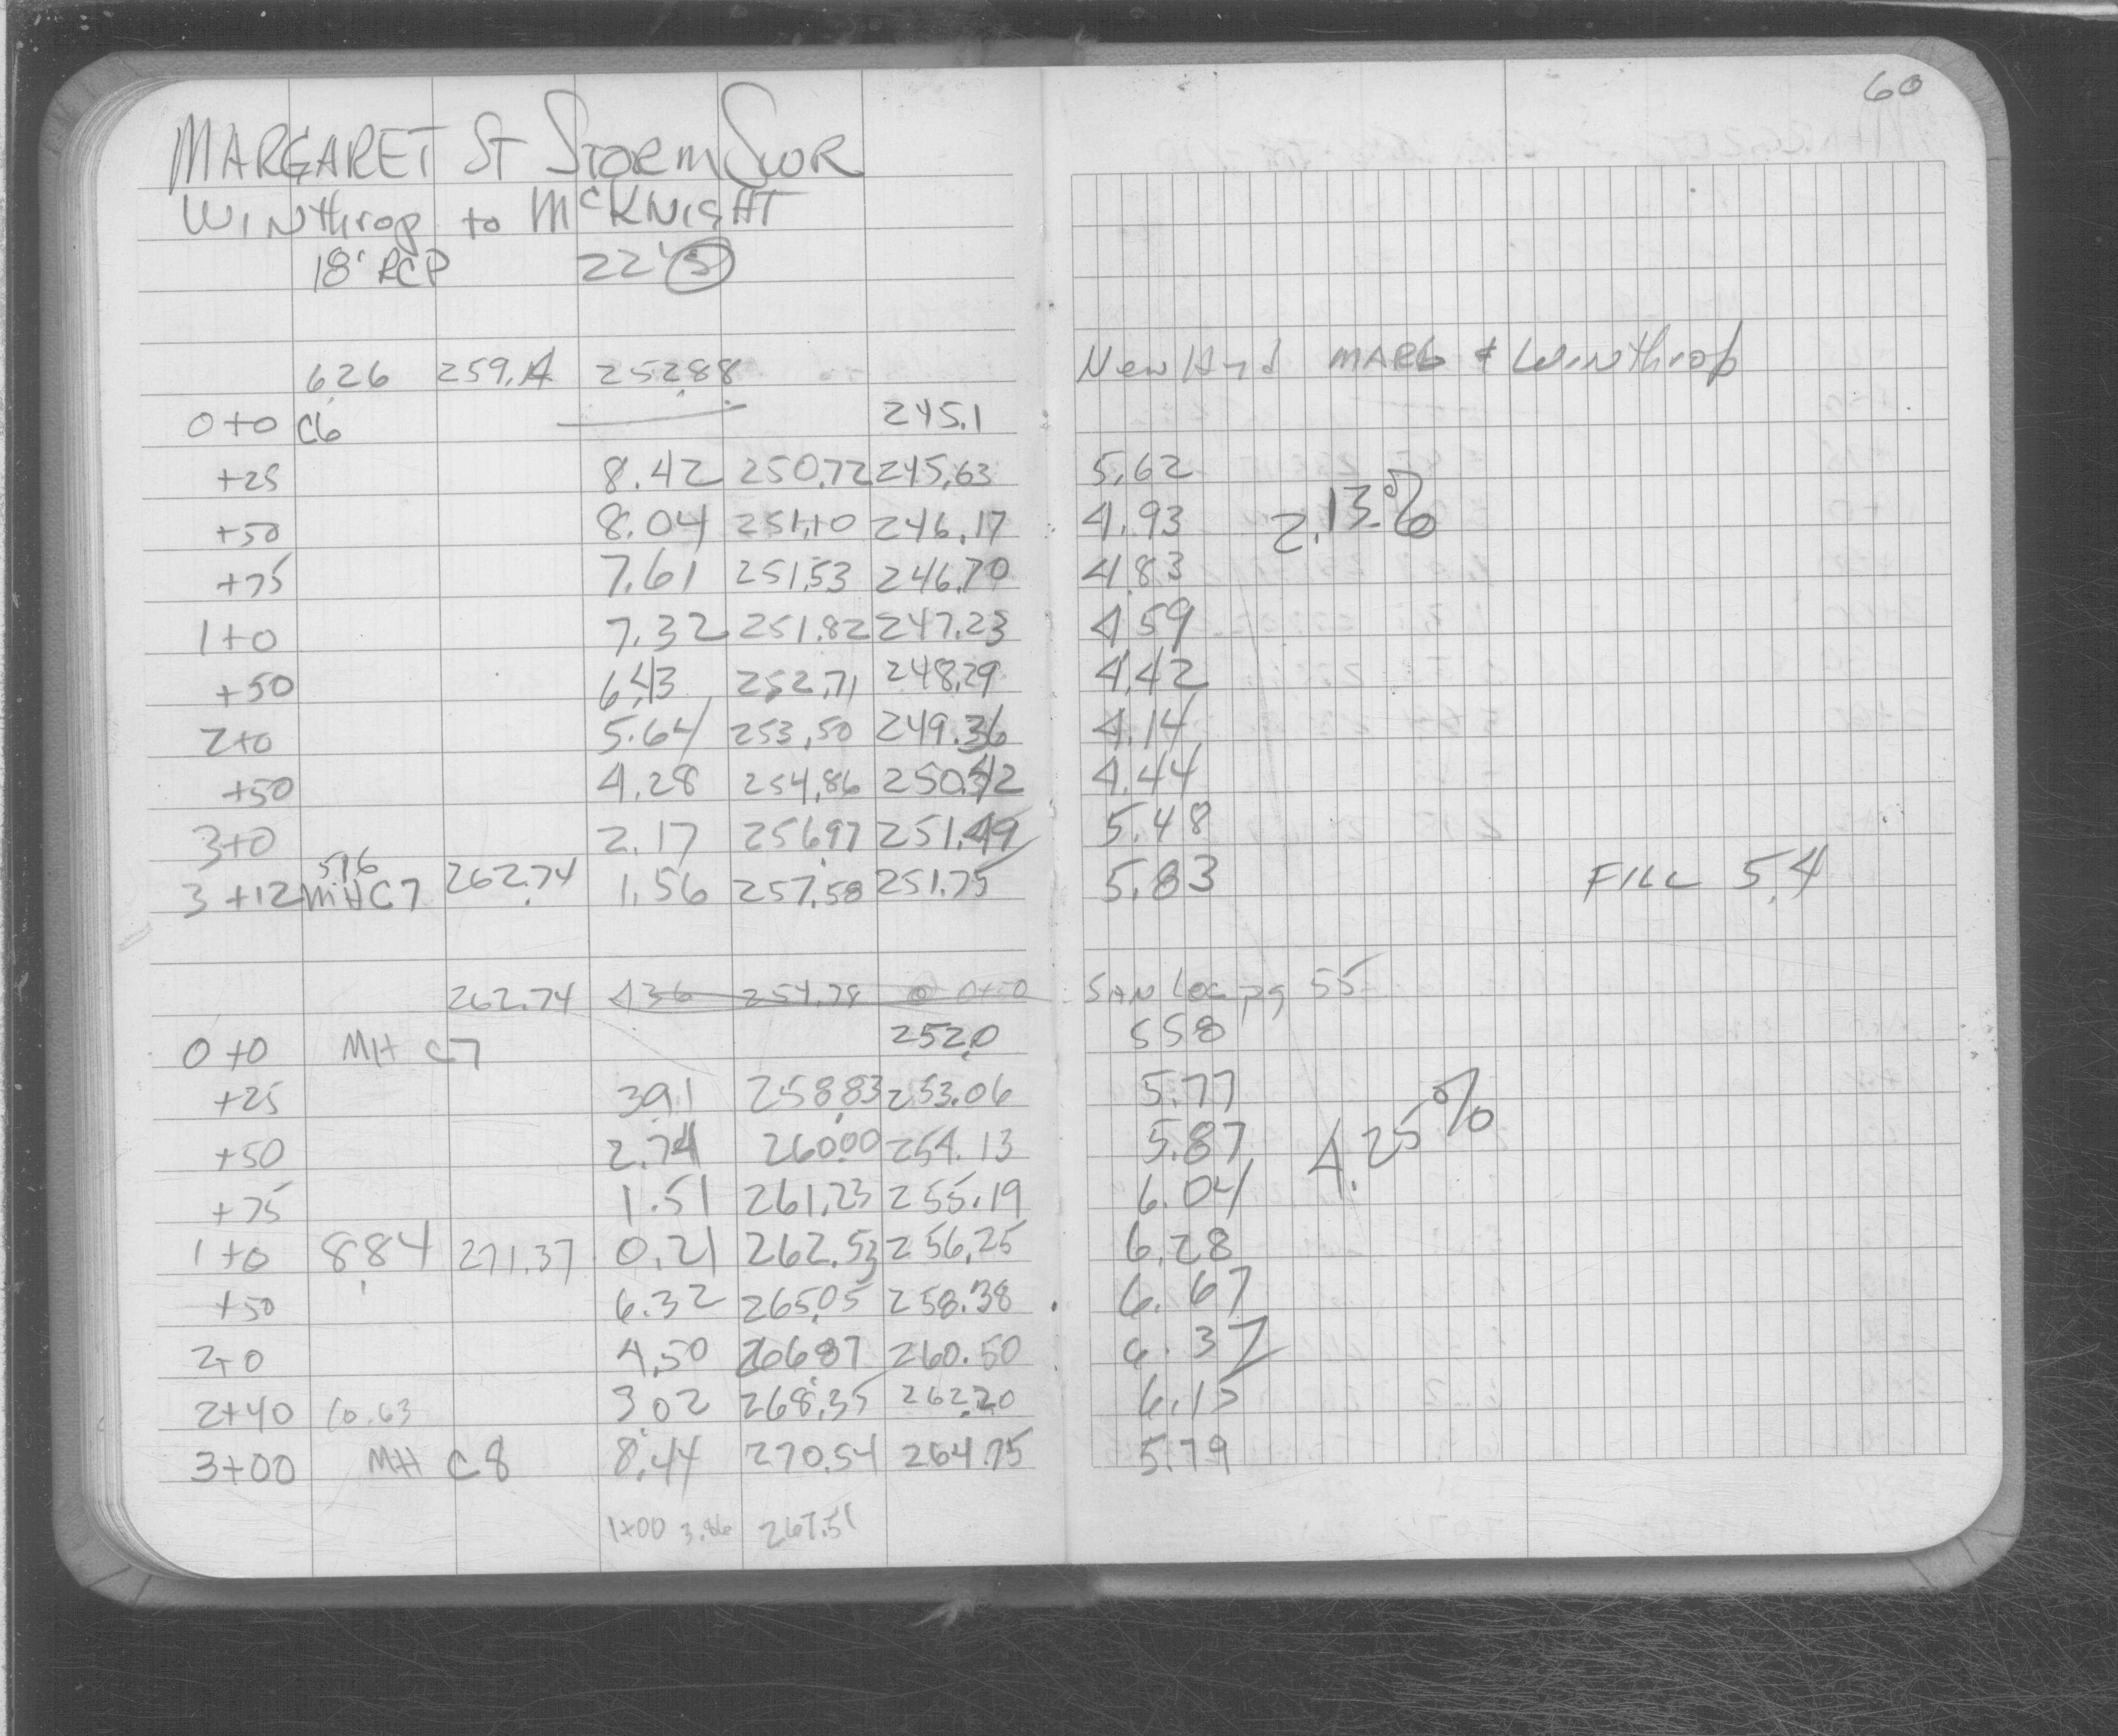 60
MARGARET ST STORM SWR
WINthrop to McKNIGHT
18" RCP 22' S
6.26 259.14 252.88 New Hyd MARG & WINthrop
0+0 C6 245.1
+25 8.42 250.72 245.63 5.62
+50 8.04 251.10 246.17 4.93 2.13%
+75 7.61 251.53 246.70 4.83
1+0 7.32 251.82 247.23 4.59
+50 6.43 252.71 248.29 4.42
2+0 5.64 253.50 249.36 4.14
+50 4.28 254.86 250.42 4.44
3+0 2.17 256.97 251.49 5.48
3+12 MH C7 5.16 262.74 1.56 257.58 251.75 5.83 FILL 5.4
262.74 436 254.78 @ 0+50 SAN LOC pg 55
0+0 MH C7 252.0 558
+25 3.91 258.83 253.06 5.77
+50 2.74 260.00 254.13 5.87 4.25%
+75 1.51 261.23 255.19 6.04
1+0 8.84 271.37 0.21 262.53 256.25 6.28
+50 6.32 265.05 258.38 6.67
2+0 4.50 266.87 260.50 6.37
2+40 10.63 3.02 268.35 262.20 6.15
3+00 MH C8 8.44 270.54 264.75 5.79
1+00 3.86 267.51